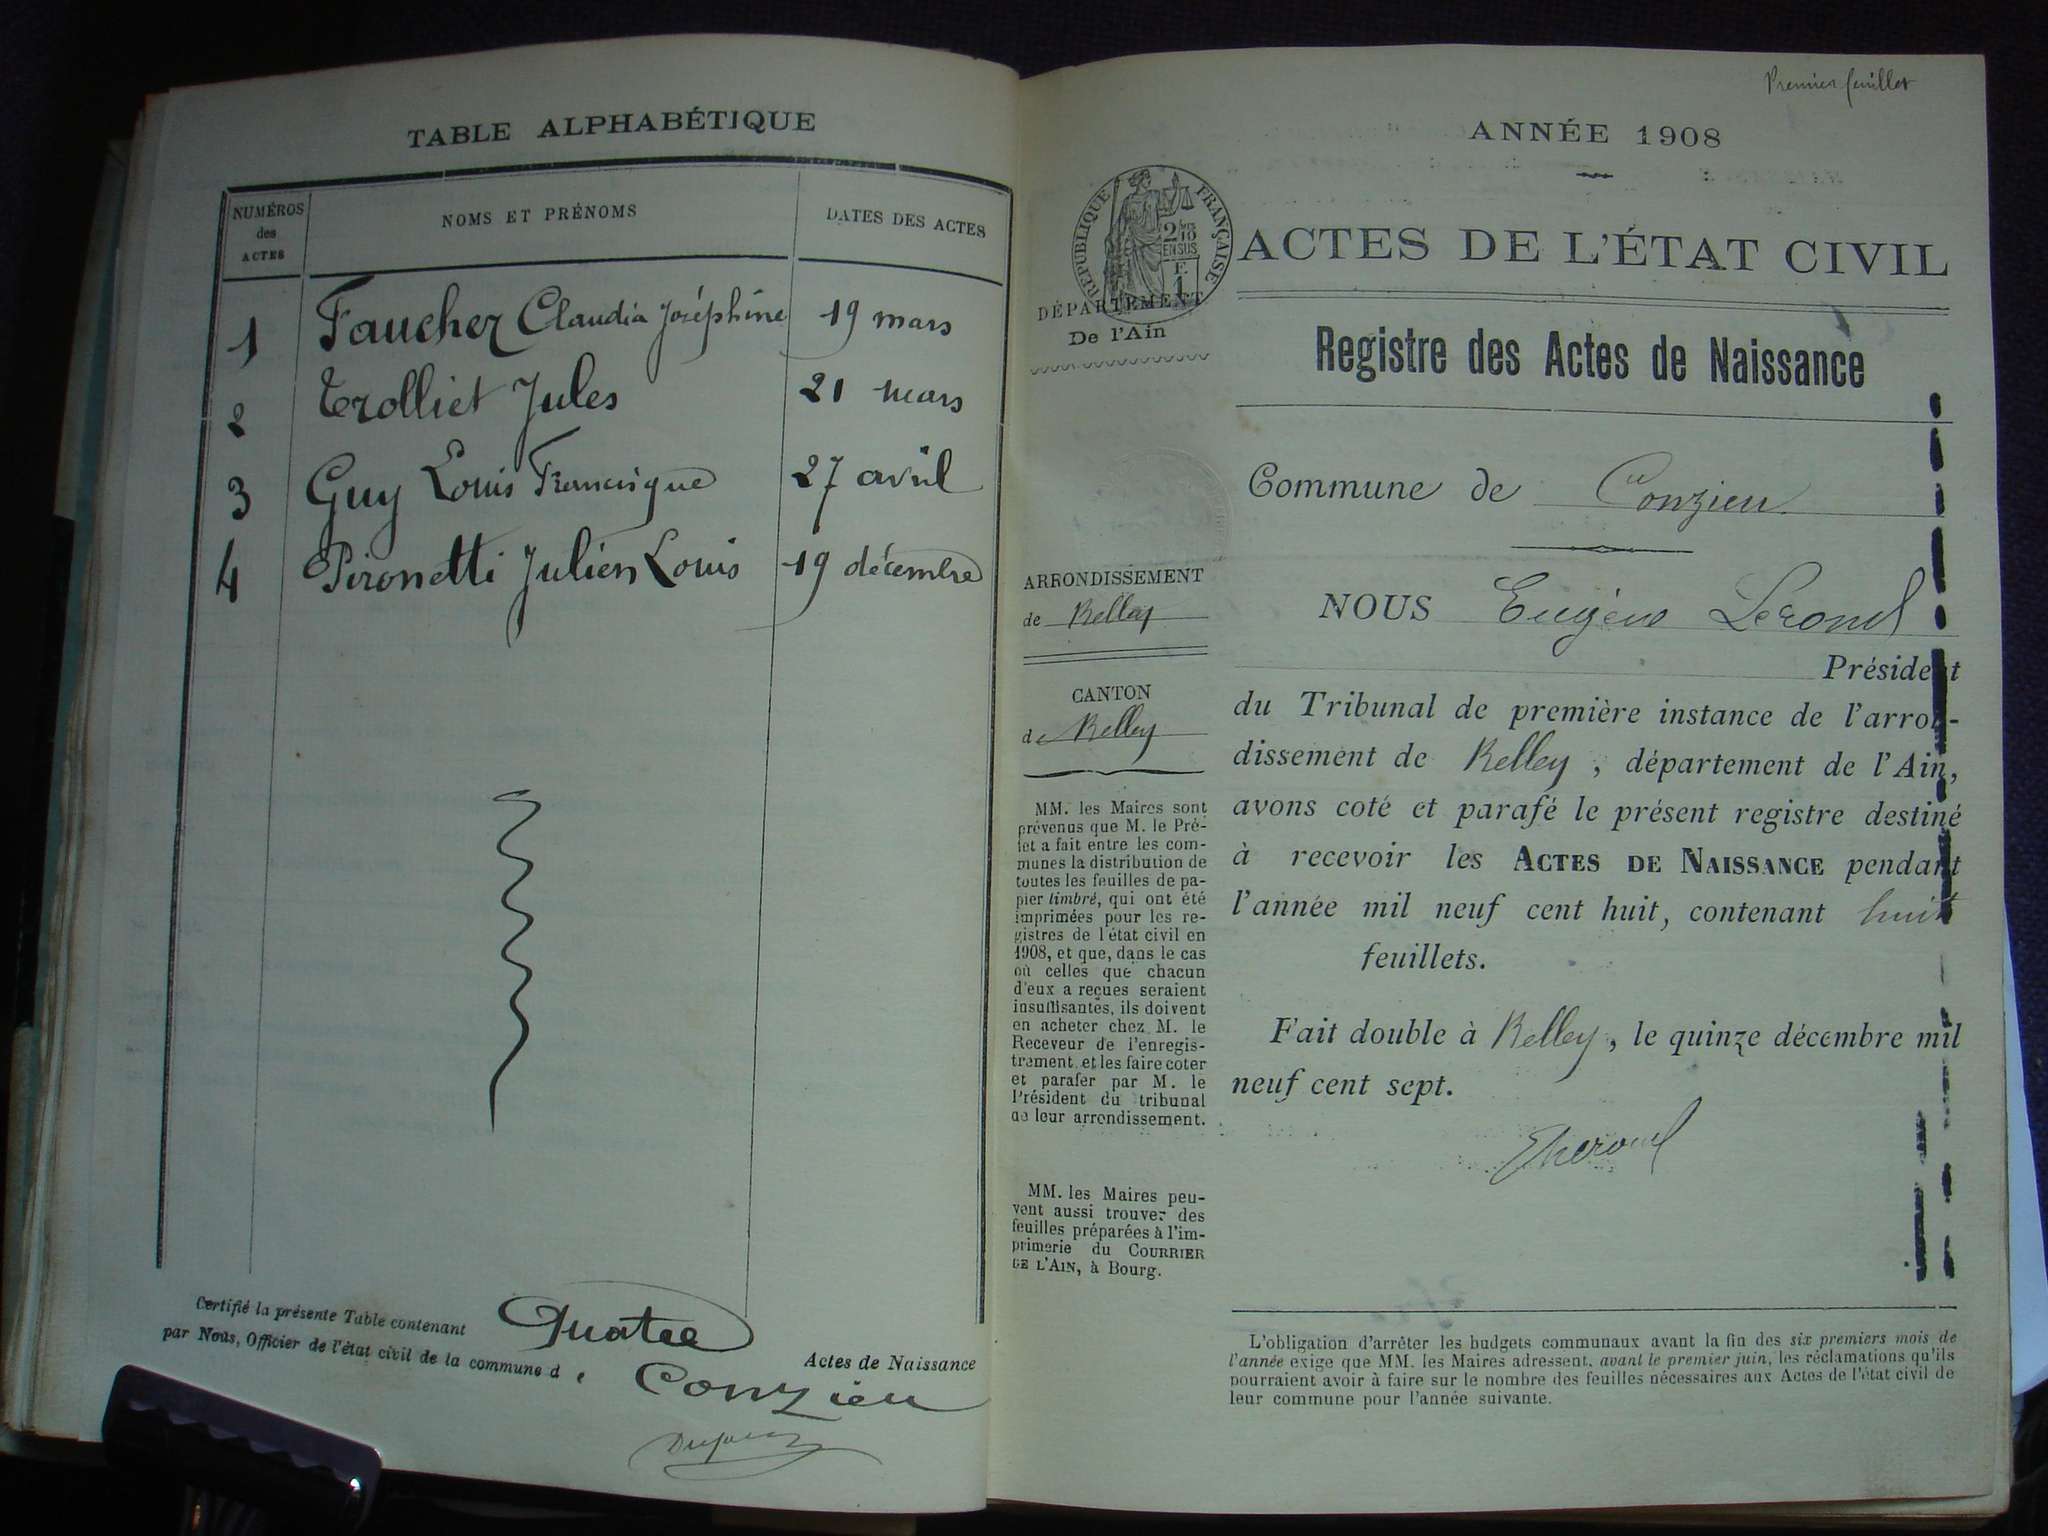 TABLE ALPHABÉTIQUE
NUMÉROS
des
ACTES
NOMS ET PRÉNOMS
DATES DES ACTES
1 Faucher Claudia Joséphine 19 mars
2 Trolliet Jules 21 mars
3 Guy Louis Francisque 27 avril
4 Pironetti Julien Louis 19 décembre
Certifié la présente Table contenant Quatre Actes de Naissance
par Nous, Officier de l'état civil de la commune de Conzieu
Premier feuillet
ANNÉE 1908
RÉPUBLIQUE FRANÇAISE
2/10
EN SUS
1 F.
ACTES DE L'ÉTAT CIVIL
DÉPARTEMENT
De l'Ain
Registre des Actes de Naissance
Commune de Conzieu
ARRONDISSEMENT
de Belley
CANTON
de Belley
MM. les Maires sont
prévenus que M. le Pré-
fet a fait entre les com-
munes la distribution de
toutes les feuilles de pa-
pier timbré, qui ont été
imprimées pour les re-
gistres de l'état civil en
1908, et que, dans le cas
où celles que chacun
d'eux a reçues seraient
insuffisantes, ils doivent
en acheter chez M. le
Receveur de l'enregis-
trement et les faire coter
et parafer par M. le
Président du tribunal
de leur arrondissement.
MM. les Maires peu-
vent aussi trouver des
feuilles préparées à l'im-
primerie du COURRIER
DE L'AIN, à Bourg.
NOUS Eugène Lerond
Président
du Tribunal de première instance de l'arron-
dissement de Belley, département de l'Ain,
avons coté et parafé le présent registre destiné
à recevoir les ACTES DE NAISSANCE pendant
l'année mil neuf cent huit, contenant huit
feuillets.
Fait double à Belley, le quinze décembre mil
neuf cent sept.
L'obligation d'arrêter les budgets communaux avant la fin des six premiers mois de
l'année exige que MM. les Maires adressent, avant le premier juin, les réclamations qu'ils
pourraient avoir à faire sur le nombre des feuilles nécessaires aux Actes de l'état civil de
leur commune pour l'année suivante.